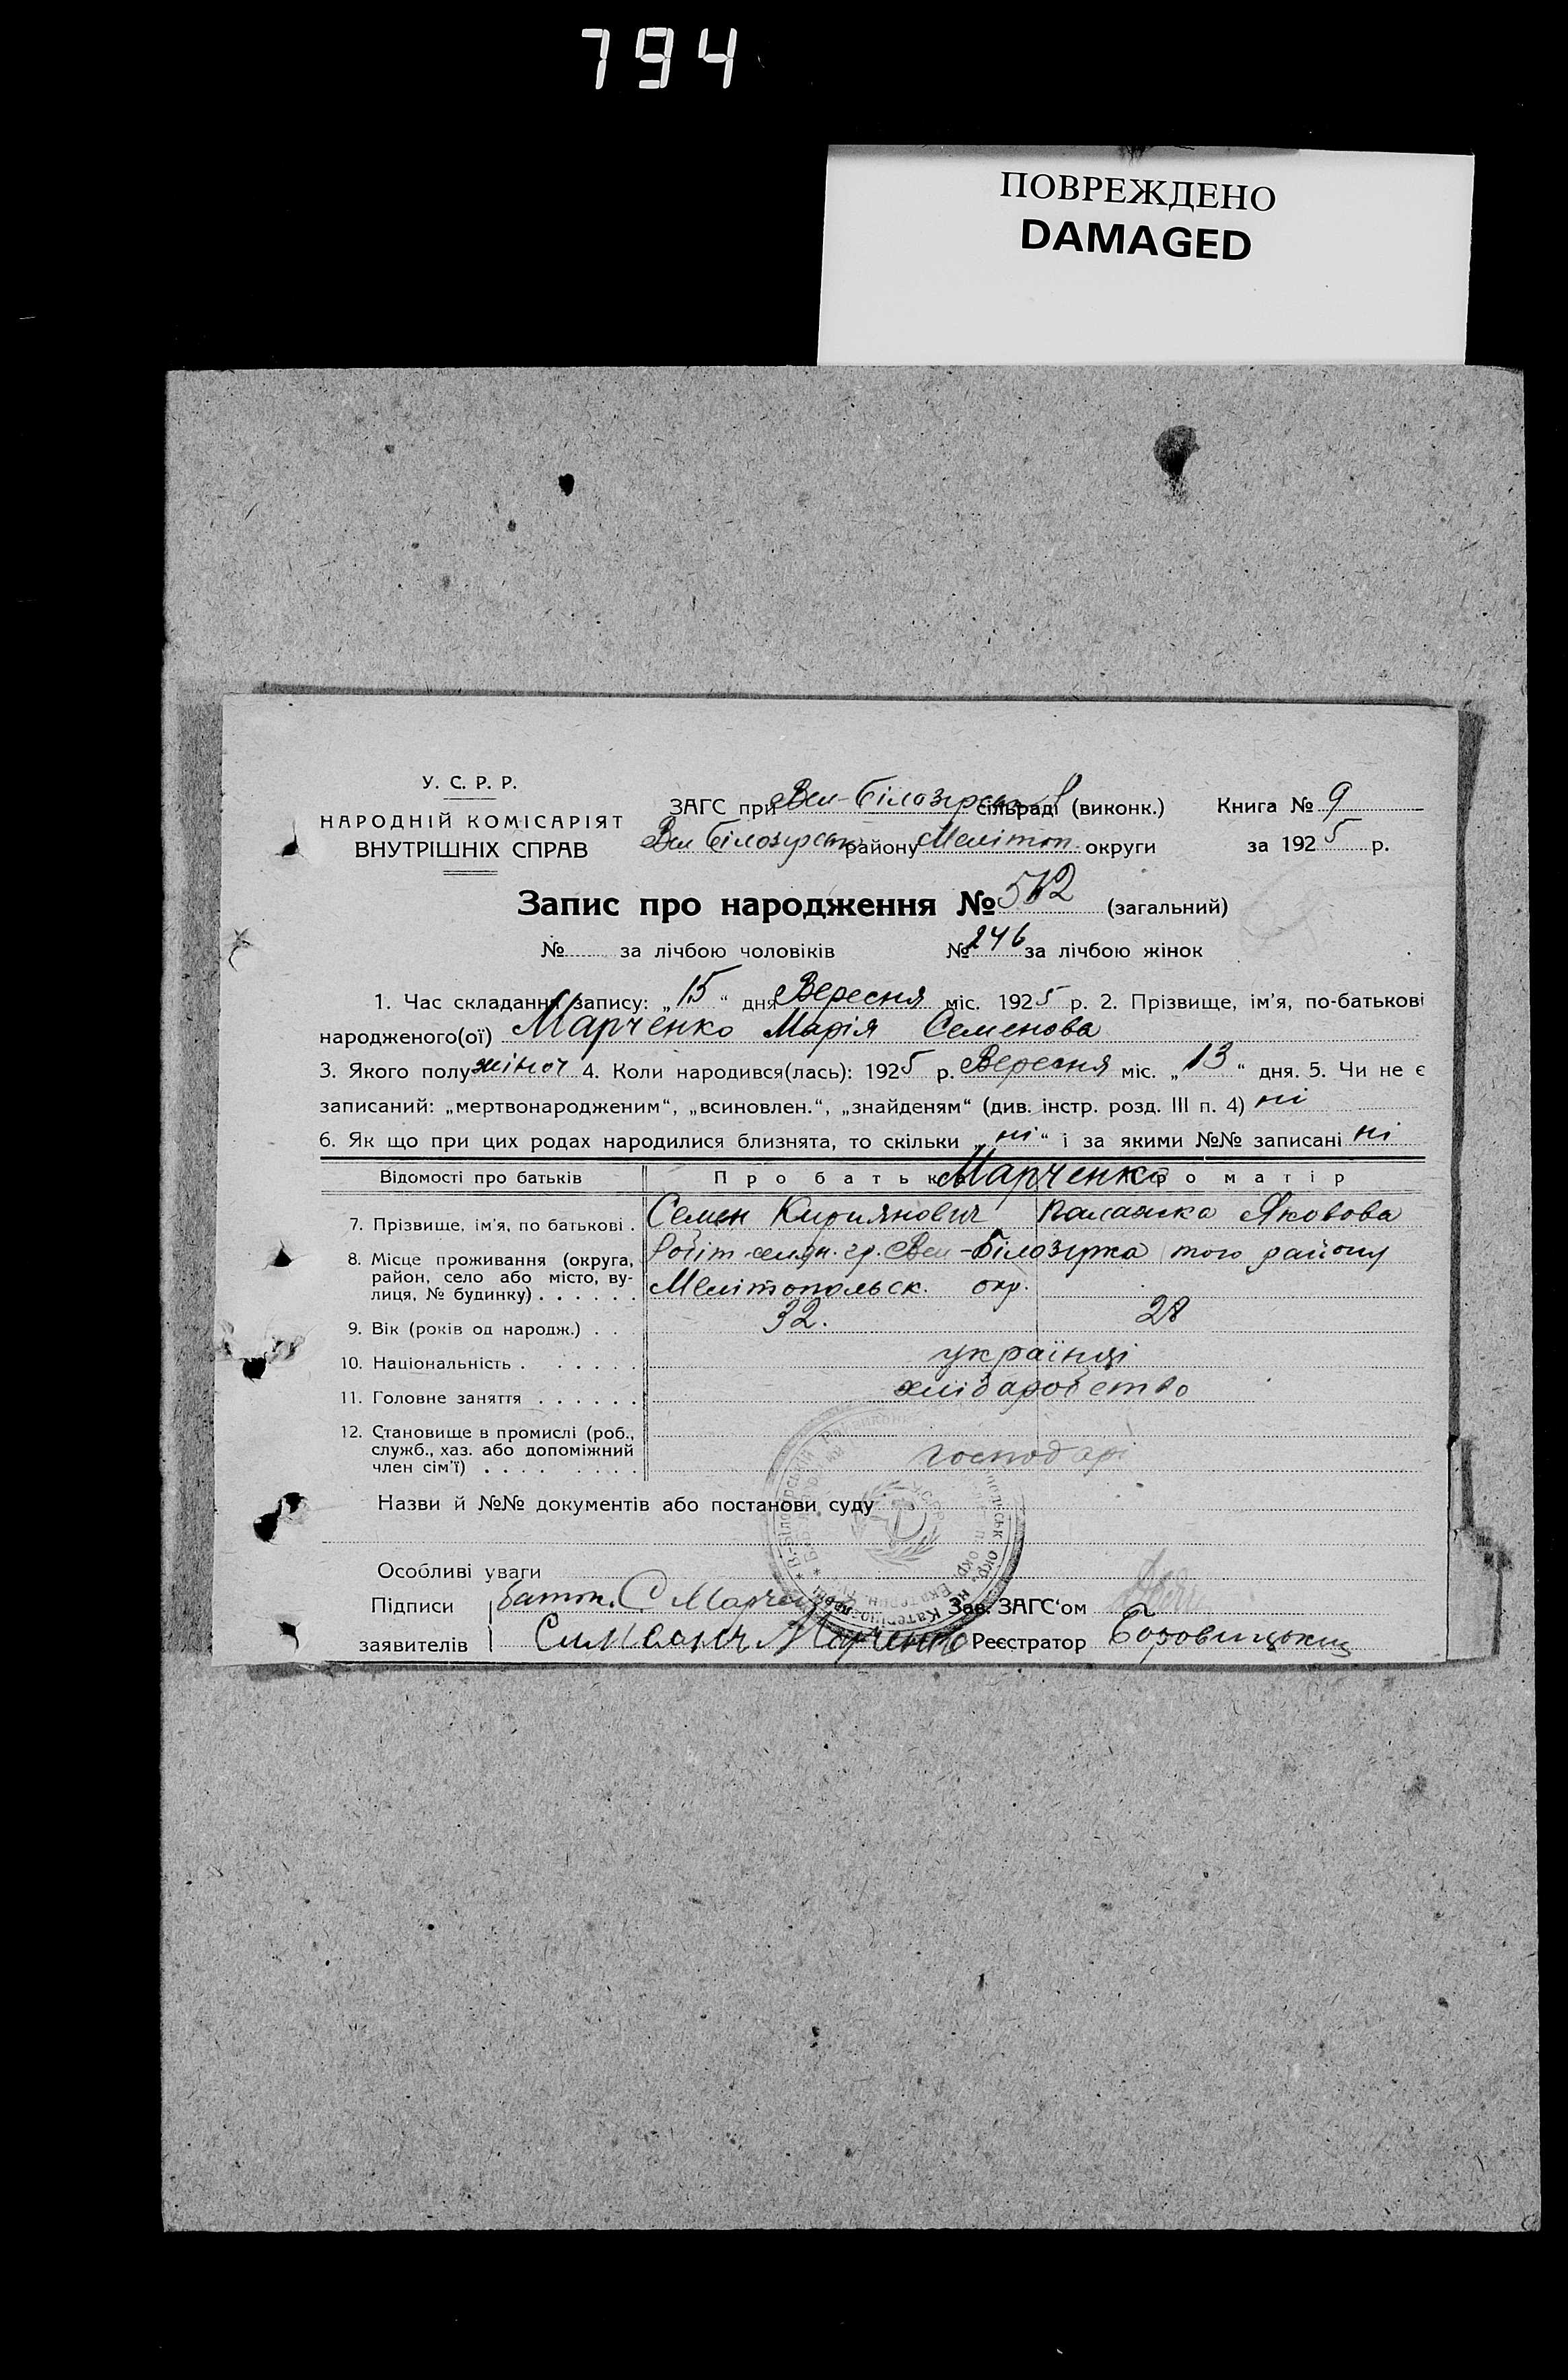 794
ПОВРЕЖДЕНО
DAMAGED
У. С. Р. Р.
НАРОДНІЙ КОМІСАРІЯТ
ВНУТРІШНІХ СПРАВ
ЗАГС при Вел-Білозірськ сільраді (виконк.) Книга № 9
Вел Білозірськ району Мелітоп. округи за 1925 р.
Запис про народження № 512 (загальний)
№ за лічбою чоловіків № 246 за лічбою жінок
1. Час складання запису: „15“ дня Вересня міс. 1925 р. 2. Прізвище, ім'я, по-батькові
народженого(ої) Марченко Марія Семенова
3. Якого полу жіноч 4. Коли народився(лась): 1925 р. Вересня міс. „13“ дня. 5. Чи не є
записаний: „мертвонародженим“, „всиновлен.“, „знайденям“ (див. інстр. розд. III п. 4) ні
6. Як що при цих родах народилися близнята, то скільки „ні“ і за якими №№ записані ні
Відомості про батьків Про батька Марченко Про матір
7. Прізвище, ім'я, по батькові . Семен Кириянович Палажка Яковова
8. Місце проживання (округа, гр. Вел-Білозірка того району
район, село або місто, ву-
лиця, № будинку) . . . . . . Мелітопольск. окр.
9. Вік (років од народж.) . . 32. 28
10. Національність . . . . . . українці
11. Головне заняття . . . . . . хліборобство
12. Становище в промислі (роб.,
служб., хаз. або допоміжний господарі
член сім'ї) . . . . . . . .
Назви й №№ документів або постанови суду
Особливі уваги
Підписи батьк. С Марчен Зав. ЗАГС‘ом
заявителів Марченко Реєстратор Боровицький